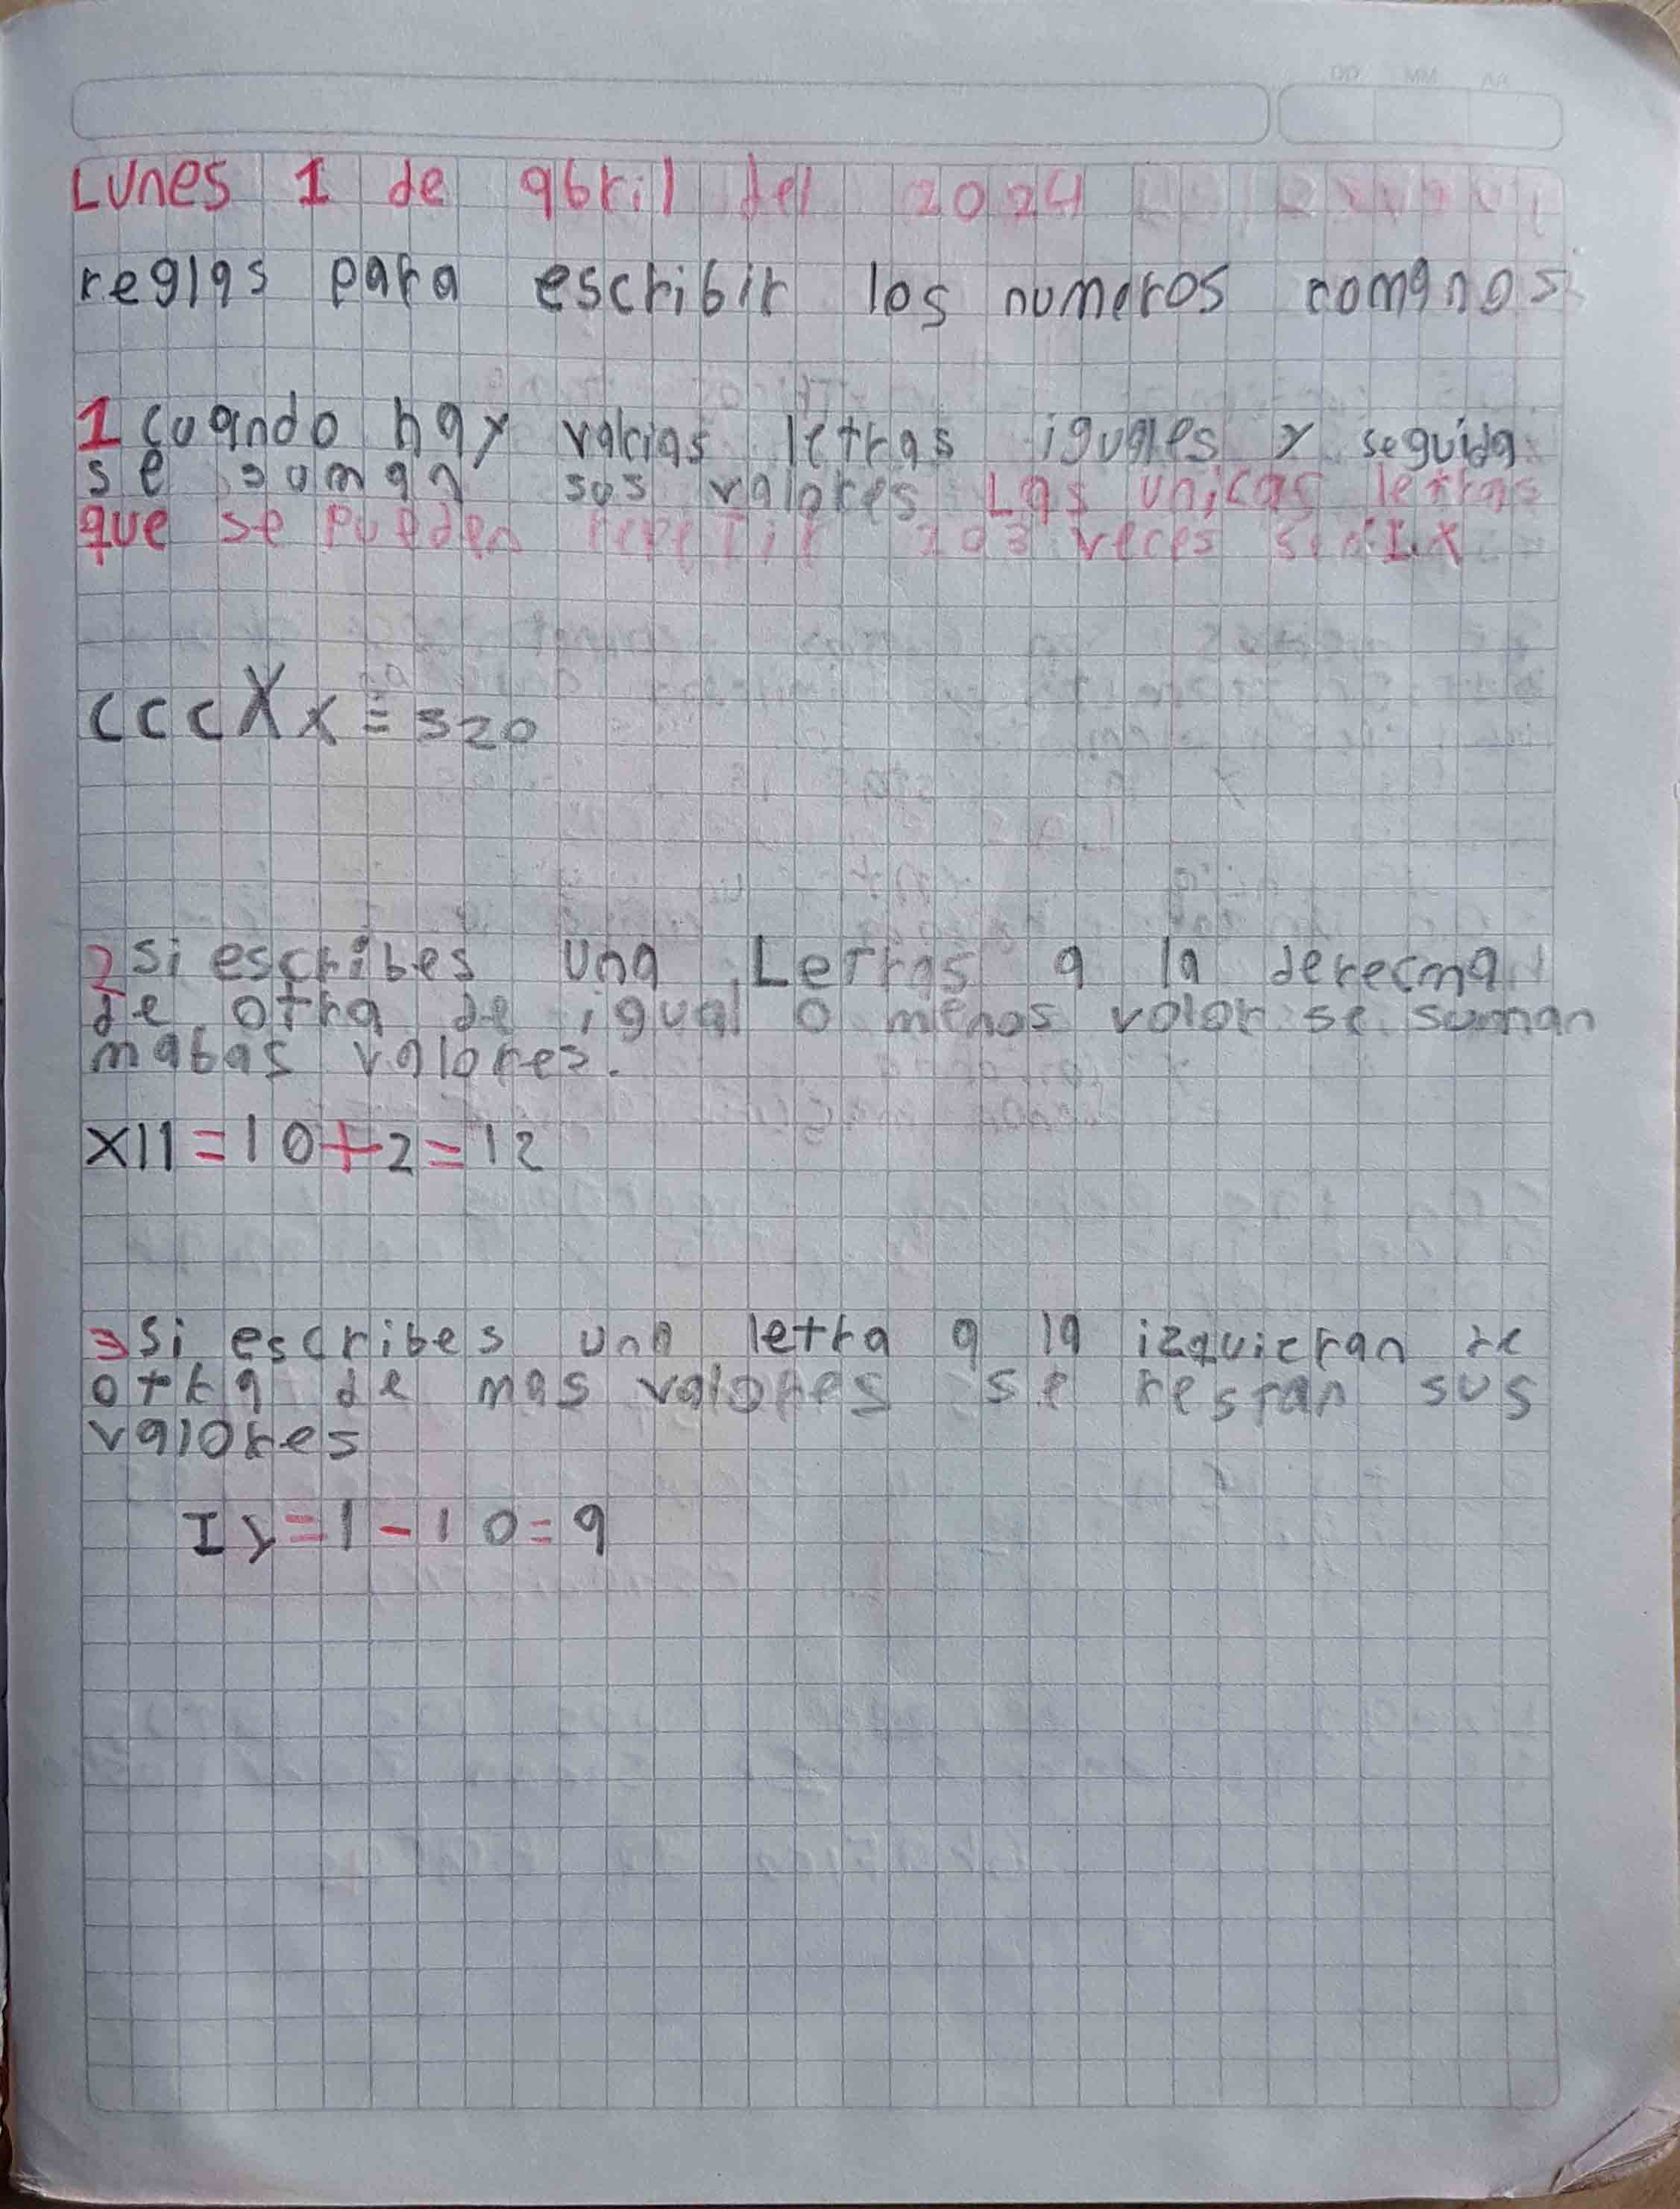 Lunes 1 de abril del 2024
reglas para escribir los numeros romanos
1 cuando hay varias letras iguales y seguida
se soman sos valores Las unicas letras
que se pueden repetir 2 o 3 veces son I.X
cccXx = 320
2 si escribes una Letras a la derecma
de otra de igual o menos valor se suman
mabas valores.
XII = 10 + 2 = 12
3 si escribes una letra a la izquieran de
otra de mas valores se restan sus
valores
Iy = 1 - 10 = 9